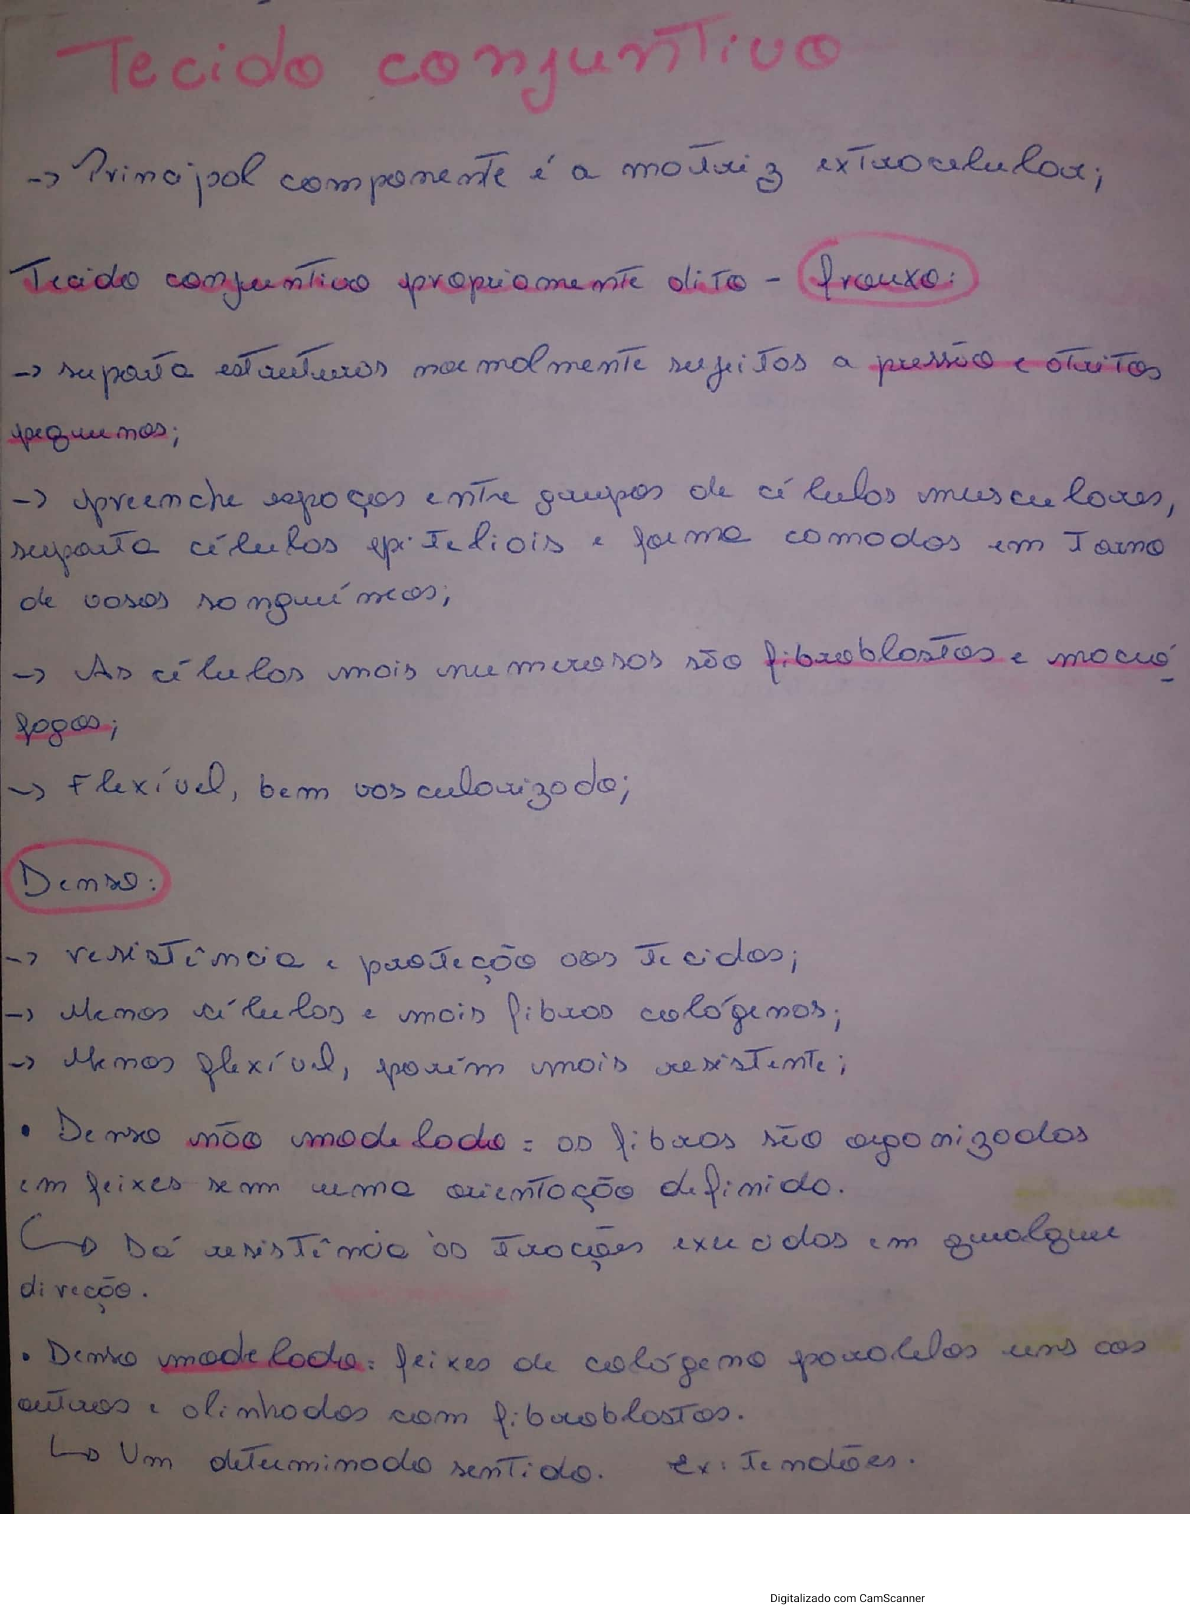 Tecido conjuntivo
-> Principal componente é a matriz extracelular;
Tecido conjuntivo propriamente dito - frouxo:
-> suporta estruturas normalmente sujeitas a pressão e atritos
pequenos;
-> preenche espaços entre grupos de células musculares,
suporta células epiteliais e forma camadas em torno
de vasos sanguíneos;
-> As células mais numerosas são fibroblastos e macró
fagos;
-> Flexível, bem vascularizado;
Denso:
-> resistência e proteção aos tecidos;
-> Menos células e mais fibras colágenas;
-> Menos flexível, porém mais resistente;
• Denso não modelado: as fibras são organizadas
em feixes sem uma orientação definida.
↳ Dá resistência às trações exercidas em qualquer
direção.
• Denso modelado: feixes de colágeno paralelos uns aos
outros e alinhados com fibroblastos.
↳ Um determinado sentido. Ex: tendões.
Digitalizado com CamScanner